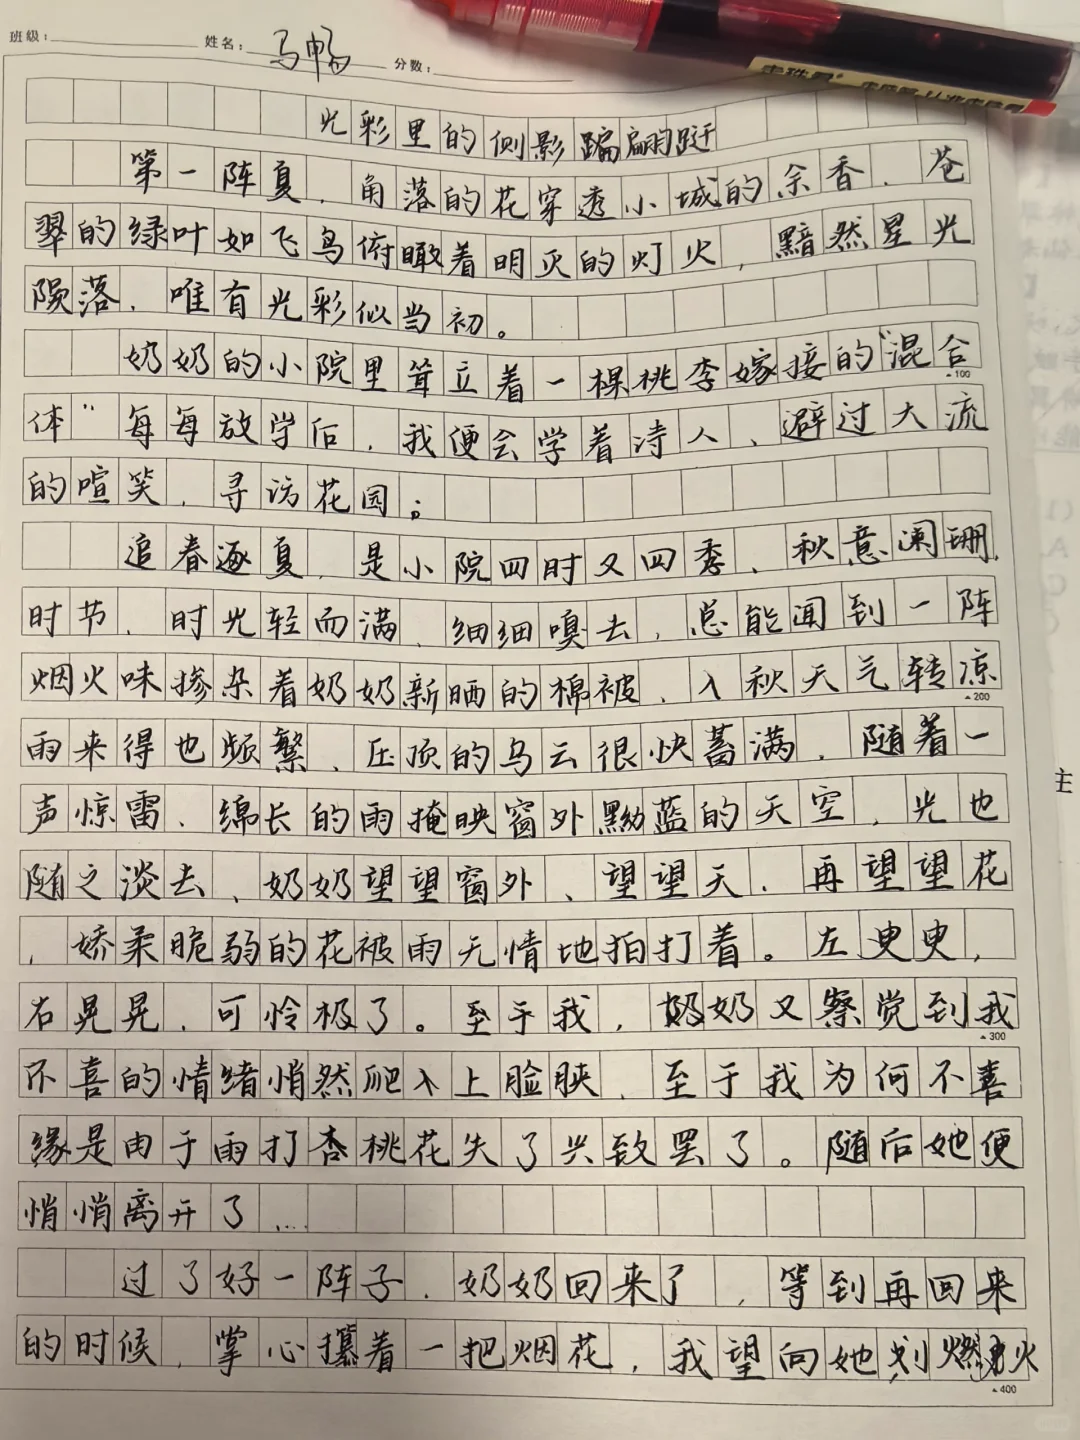 班级： 姓名：马畅 分数：
光彩里的侧影蹁翩跹
第一阵夏，角落的花穿透小城的余香、苍
翠的绿叶如飞鸟俯瞰着明灭的灯火，黯然星光
陨落，唯有光彩似当初。
奶奶的小院里耸立着一棵桃李嫁接的“混合
体”每每放学后，我便会学着诗人、避过大流
的喧笑，寻访花园；
追春逐夏，是小院四时又四季、秋意阑珊，
时节，时光轻而满，细细嗅去，总能闻到一阵
烟火味掺杂着奶奶新晒的棉被，入秋天气转凉
雨来得也频繁、压顶的乌云很快蓄满，随着一
声惊雷、绵长的雨掩映窗外黝蓝的天空，光也
随之淡去、奶奶望望窗外、望望天，再望望花
，娇柔脆弱的花被雨无情地拍打着。左曳曳，
右晃晃，可怜极了。至于我，奶奶又察觉到我
不喜的情绪悄然爬入上脸颊，至于我为何不喜
缘是由于雨打杏桃花失了兴致罢了。随后她便
悄悄离开了…
过了好一阵子，奶奶回来了，等到再回来
的时候，掌心攥着一把烟花，我望向她划燃火
100
200
300
400
主